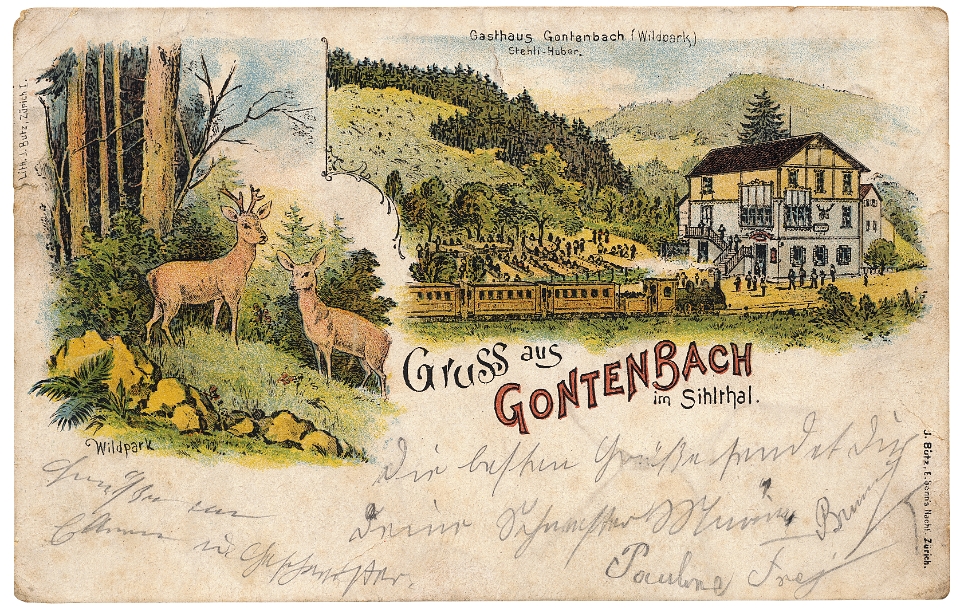 Gasthaus Gontenbach (Wildpark)
Stehli-Huber.
Lith. J. Bütz, Zürich I.
Gruss aus
GONTENBACH
im Sihlthal.
Wildpark
Die besten Grüße sendet Dir
Deine Schwester
Pauline Frej
Grüße an
Geschwister.
J. Bütz, Zürich.